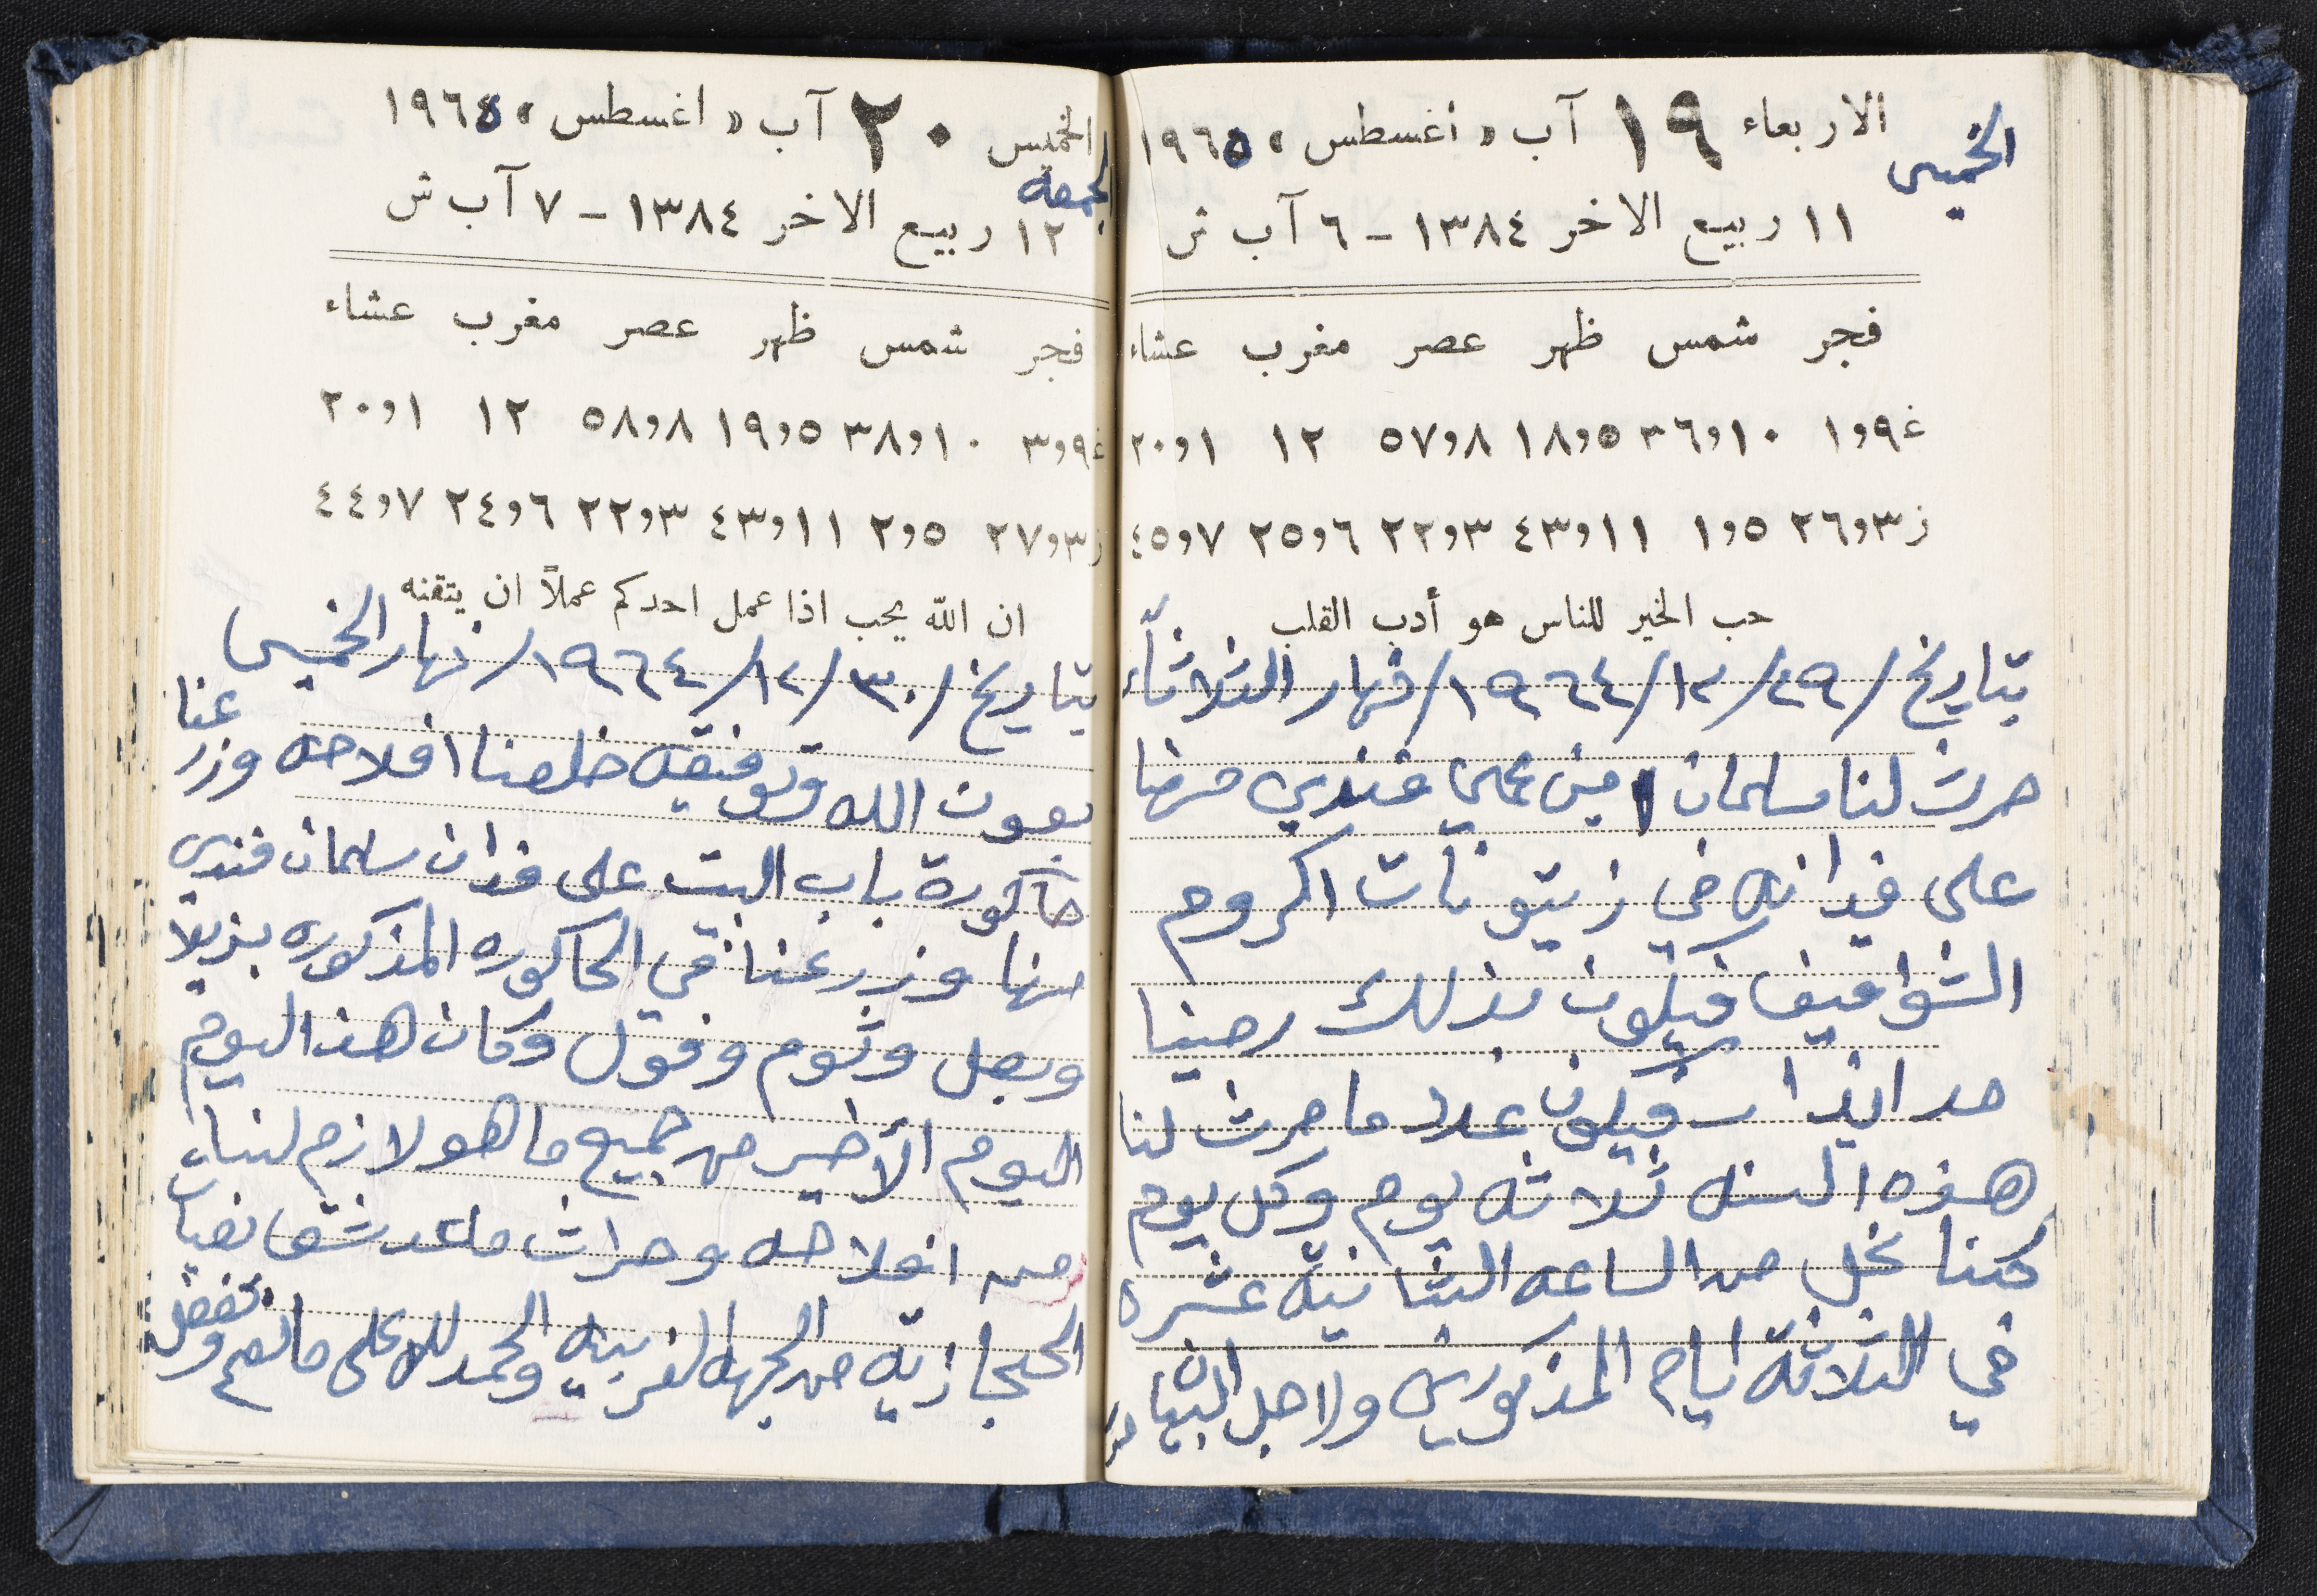 الخميس
الاربعاء ١٩ آب «اغسطس» ١٩٦٥
١١ ربيع الاخر ١٣٨٤ - ٦ آب ش
فجر شمس ظهر عصر مغرب عشاء
غ ٩و١ ١٠و٣٦ ٥و١٨ ٨و٥٧ ١٢ ١و٢٠
ز ٣و٢٦ ٥و١ ١١و٤٣ ٣و٢٢ ٦و٢٥ ٧و٤٥
حب الخير للناس هو أدب القلب
بتاريخ /٢٩/١٢/١٩٦٤/ نهار الثلاثاء
حرث لنا سلمان فندي حرثها
على فدانه في زيتونات اكروم
الشواقيف فيكون بذلك
فيكون عدد ما حرث لنا
هذه السنه ثلاثه يوم وكل يوم
كنا نحل من الساعه الثانية عشره
في الثلاثة ايام المذكورين ولاجل البيان
الخميس ٢٠ آب «اغسطس» ١٩٦٥
الجمعه
١٢ ربيع الاخر ١٣٨٤ - ٧ آب ش
فجر شمس ظهر عصر مغرب عشاء
غ ٩و٣ ١٠و٣٨ ٥و١٩ ٨و٥٨ ١٢ ١و٢٠
ز ٣و٢٧ ٥و٢ ١١و٤٣ ٣و٢٢ ٦و٢٤ ٧و٤٤
ان الله يحب اذا عمل احدكم عملاً ان يتقنه
بتاريخ /٣٠/١٢/١٩٦٤/ نهار الخميس
بعون الله وتوفيقه خلصنا افلاحه وزرعنا
حاكورة باب البيت على فدان سلمان فندي
حرثها وزرعنا في الحاكوره المذكوره بزيلا
وبصل وثوم وفول وكان هذا اليوم
اليوم الأخير من جميع ما هو لازم لنا
من افلاحه وحراث ماعد شقا نصبات
الحجازيه من الجهه الغربيه والحمد لله على ما انعم وتفضل